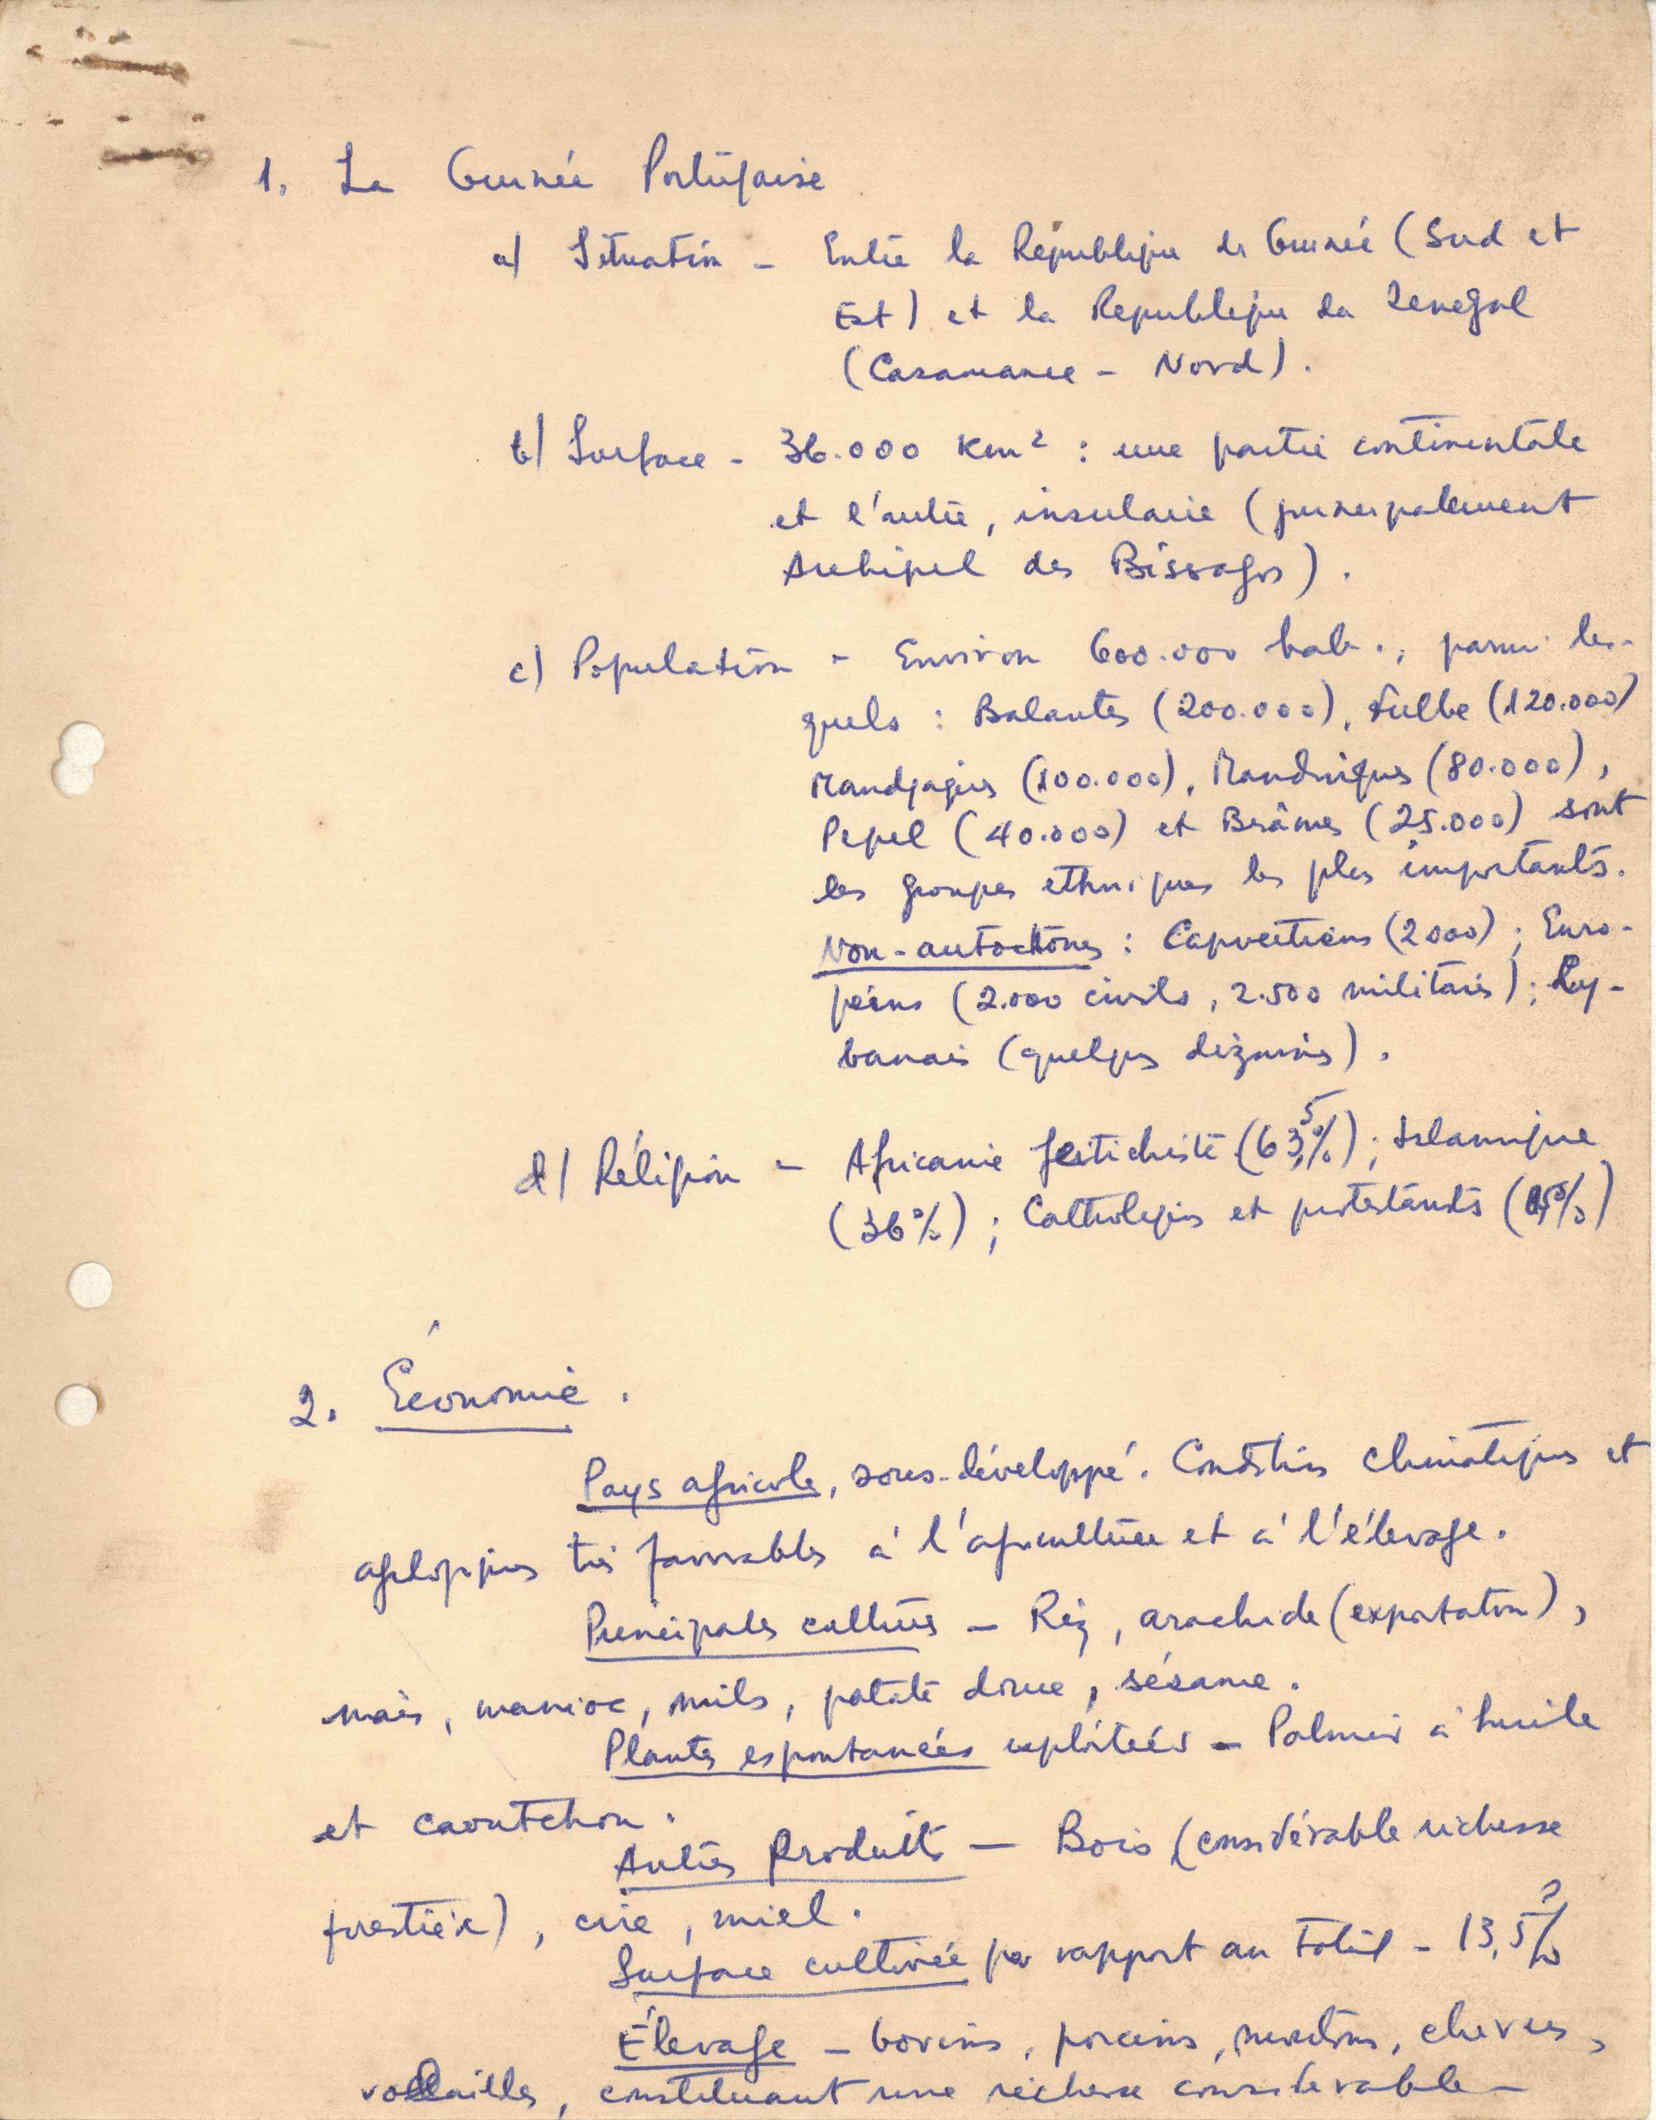 1. La Guinée Portugaise
a) Situation - Entre la République de Guinée (Sud et
Est) et la Republique du Senegal
(Casamance - Nord).
b) Surface - 36.000 Km² : une partie continentale
et l'autre, insulaire (principalement
Archipel des Bissagos).
c) Population - Environ 600.000 hab., parmi les-
quels : Balantes (200.000), Fulbe (120.000)
Mandjaques (100.000), Mandingues (80.000),
Pepel (40.000) et Brâmes (25.000) sont
les groupes ethniques les plus importants.
Non-autochtones : Capverdiens (2000) ; Euro-
péens (2.000 civils, 2.500 militaires) ; Ly-
banais (quelques dizaines).
d) Réligion - Africaine fetichiste (63,5%) ; Islamique
(36%) ; Catholiques et protestants (0,5%)
2. Économie.
Pays agricole, sous-développé. Conditions climatiques et
très favorables à l'agriculture et à l'élevage.
Principales cultures - Riz, arachide (exportation),
maïs, manioc, mils, patate douce, sésame.
Plantes espontanées exploitées - Palmier à huile
et caoutchou.
Autres Produits - Bois (considérable richesse
forestière), cire, miel.
Surface cultivée par rapport au total - 13,5%
Élevage - bovins, porcins, moutons, chevres,
volailles, constituant une richesse considerable -